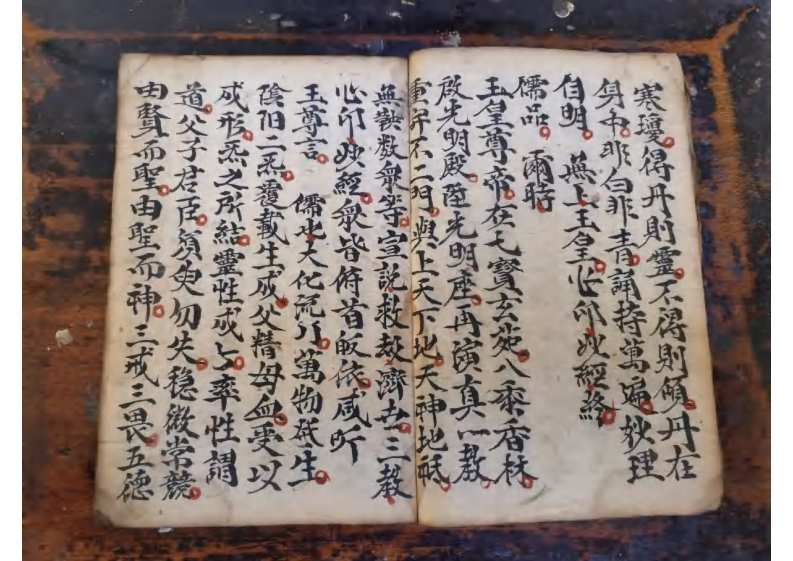 寒瓊得丹則靈不得則傾丹在
身中非白非青誦持萬遍妙理
自明 無上玉皇心印妙經終
儒品 爾時
玉皇尊帝在七寶玄苑八黍香林
啟光明殿陞光明座再演真一教
重宣不二門與上天下地天神地祗
無鞅数衆等宣說救劫濟世三教
心印妙經衆皆俯首皈依咸听
玉尊言 儒也大化流行萬物秖生
陰阳二炁覆載生成父精母血受以
成形炁之所結靈性成与率性謂
道父子君臣須臾勿失穏微常競
由賢而聖由聖而神三戒三畏五德